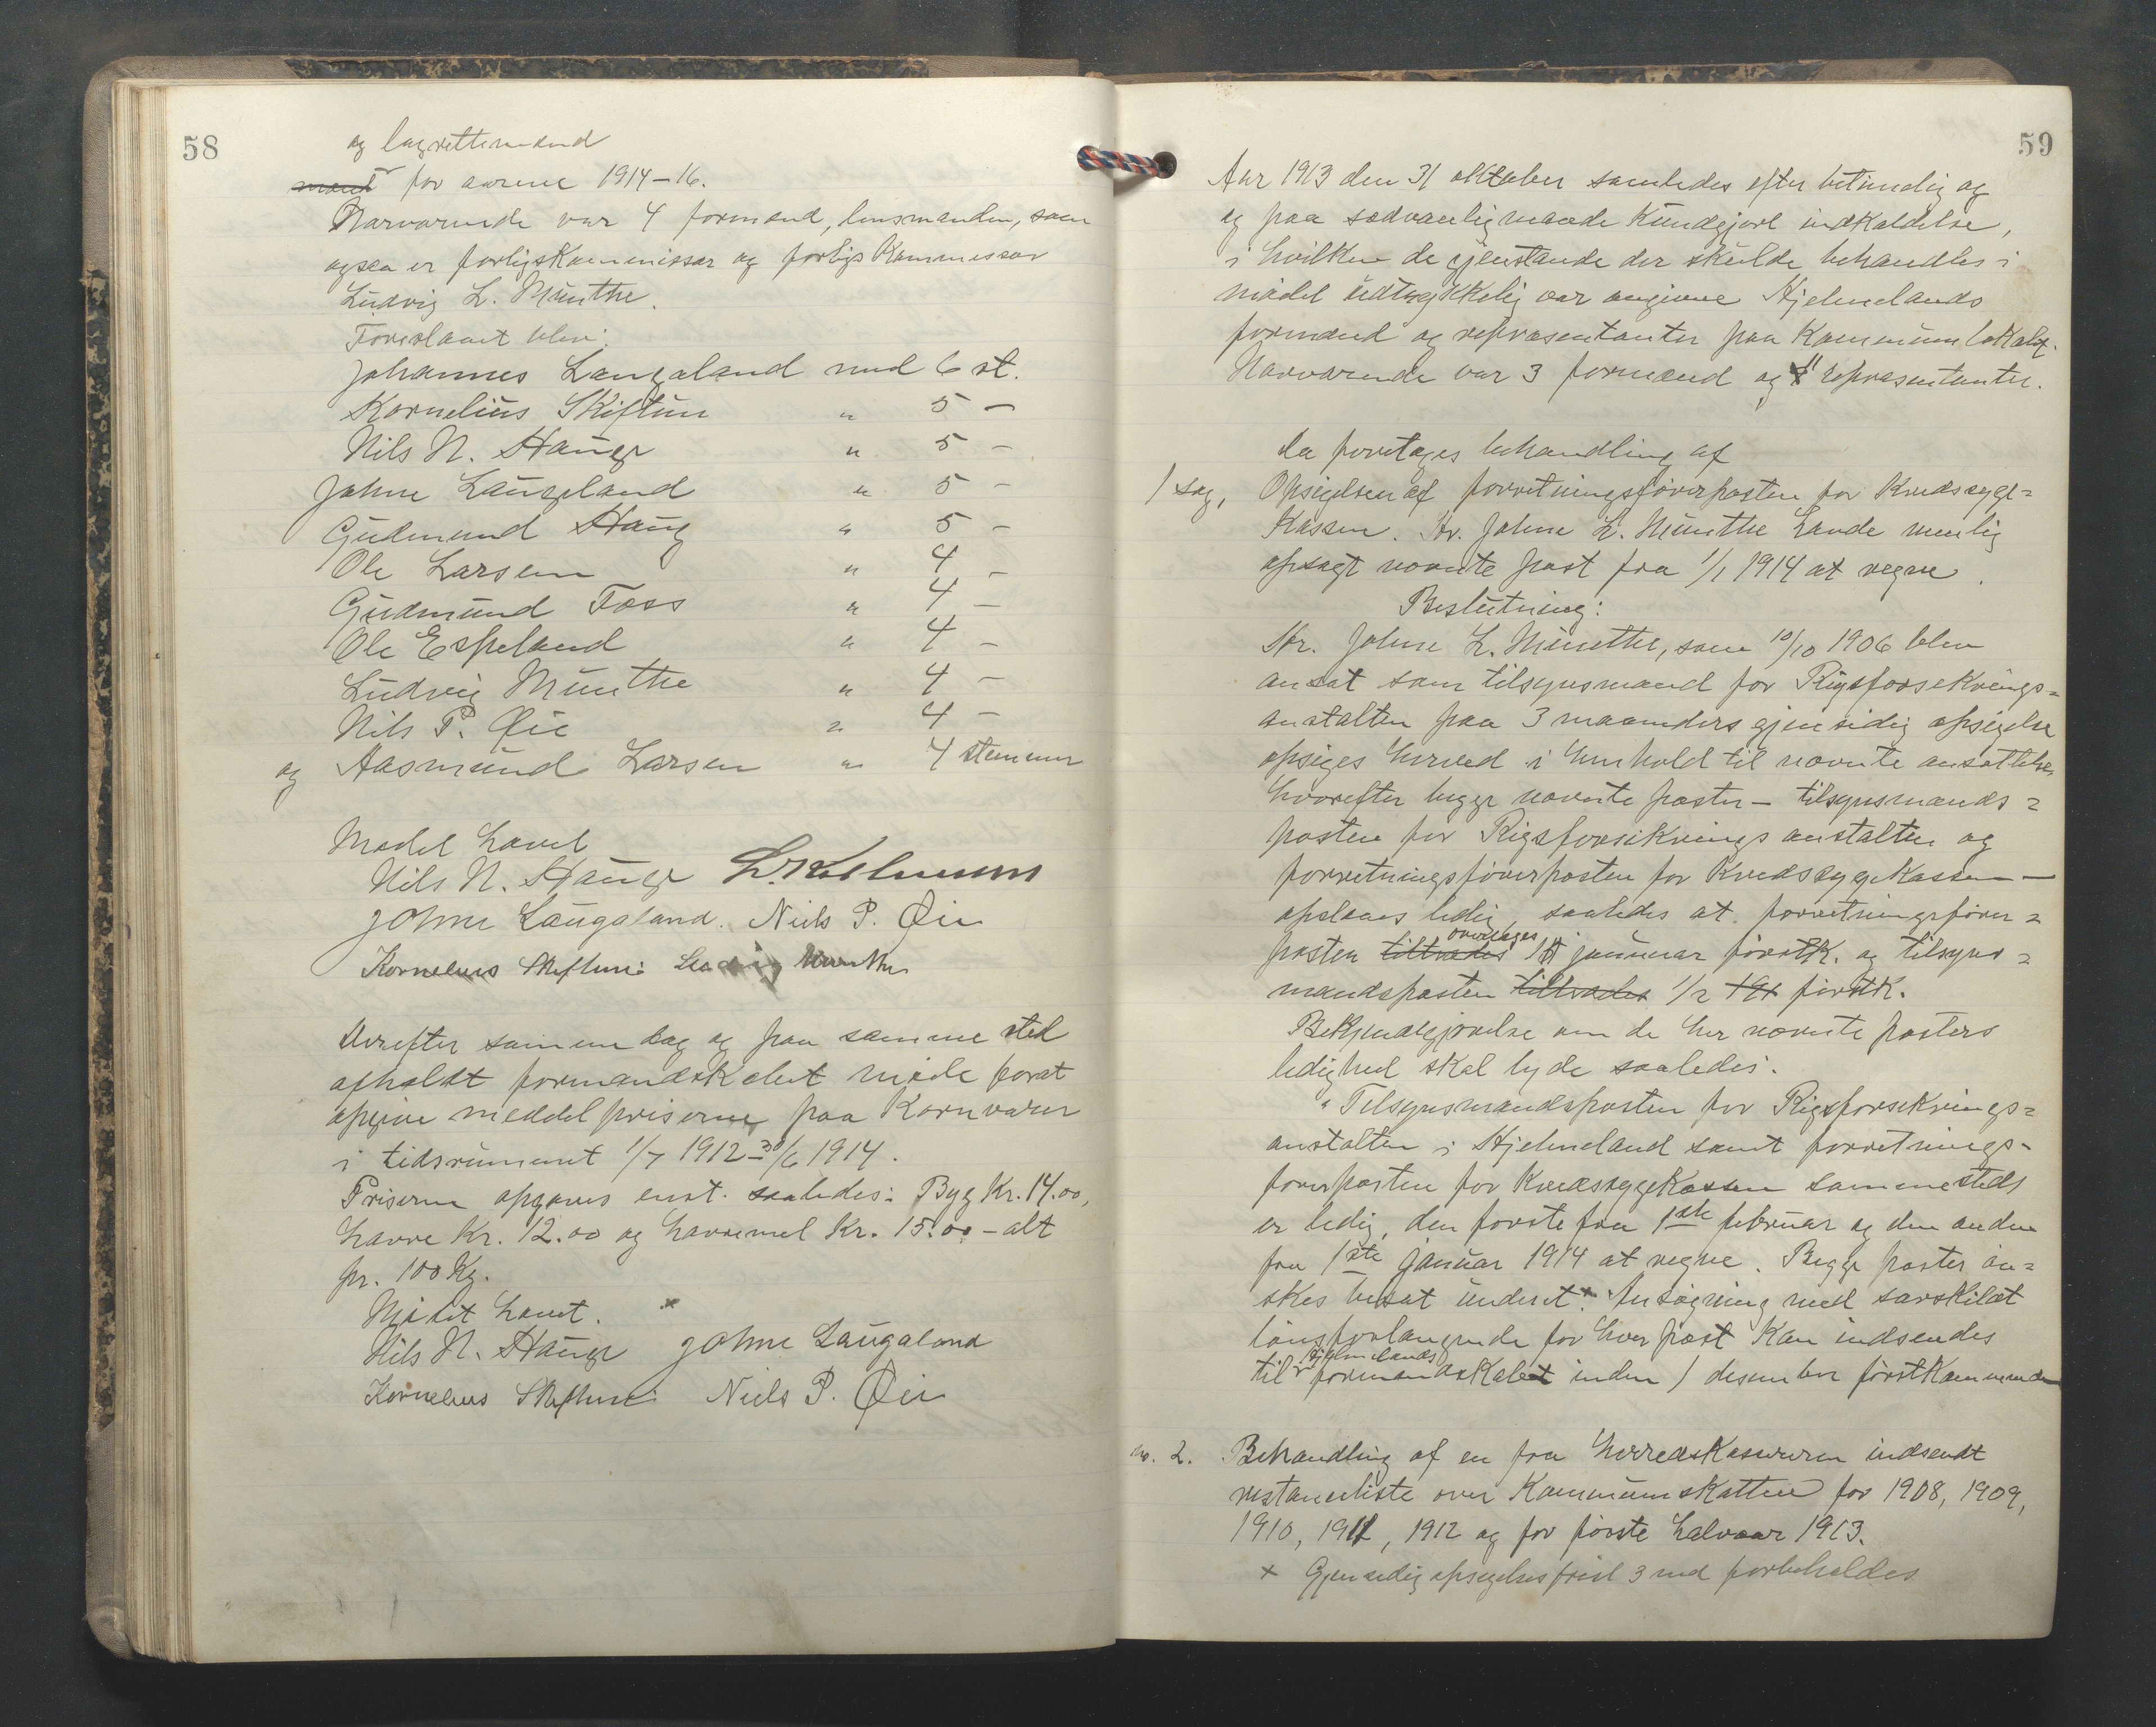 58
og lagrettemænd
mænd for aarene 1914-16.
Nærværende var 4 formænd, lensmanden, som
ogsaa er forligskommissær og forligskommissær
Ludvig L. Münthe.
Foreslaaet blev:
Johannes Laugaland med 6 st.
Kornelius Skiftun " 5 -
Nils N. Hauge " 5 -
Johne Laugaland " 5 -
Gudmund Haug " 5 -
Ole Larsen " 4 -
Gudmund Foss " 4 -
Ole Espeland " 4 -
Ludvig Münthe " 4 -
Nils P. Øie " 4 -
og Aasmund Larsen " 4 stemmer
Mødet hævet
Nils N. Hauge
Johne Laugaland. Niels P. Øie
Kornelius Skiftun Ludvig Munthe
Derefter samme dag og paa samme sted
afholdt formandskabet møde forat
opgive meddelpriserne paa kornvarer
i tidsrummet 1/7 1912-30/6 1914.
Priserne opgaves enst. saaledes: Byg Kr. 14.00,
havre Kr. 12.00 og havremel Kr. 15.00 - alt
pr. 100 Kg.
Mødet hævet.
Nils N. Hauge Johne Laugaland
Kornelius Skiftun Niels P. Øie
59
Aar 1913 den 31 oktober samledes efter betimelig og
og paa sædvanlig maade kundgjort indkaldelse,
i hvilken de gjenstande der skulde behandles i
mødet udtrykkelig var angivne Hjelmelands
formænd og repræsentanter paa Kommunelokalet.
Nærværende var 3 formænd og 11 repræsentanter.
Da foretages behandling af
1 sag, Opsigelsen af forretningsførerposten for Kredssyge=
kassen. Hr. Johne L. Münthe havde nemlig
opsagt nævnte post fra 1/1 1914 at regne.
Beslutning:
Hr. Johne L. Münthe, som 10/10 1906 blev
ansat som tilsynsmand for Rigsforsikrings=
anstalten paa 3 maaneders gjensidig opsigelse
opsiges herved i henhold til nævnte ansættelse
hvorefter begge nævnte poster - tilsynsmands=
posten for Rigsforsikringsanstalten og
forretningsførerposten for Kredssygekassen -
opslaaes ledig, saaledes at forretningsfører=
posten tiltrædes overtages 1 januar førstk. og tilsyns=
mandsposten tiltrædes 1/2 førstk.
Bekjendtgjørelse om de her nævnte posters
ledighed skal lyde saaledes:
"Tilsynsmandsposten for Rigsforsikrings=
anstalten i Hjelmeland samt forretnings-
førerposten for Kredssygekassen sammesteds
er ledig, den første fra 1ste februar og den anden
fra 1ste januar 1914 at regne. Begge poster øn=
skes besat underet. x Ansøgning med særskildt
lønsforlangende for hver post kan indsendes
til Hjelmelands formandskabet inden 1 desember førstkommende
no. 2. Behandling af en fra herredskassereren indsendt
restanceliste over Kommuneskatten for 1908, 1909,
1910, 1911, 1912 og for første halvaar 1913.
x Gjensidig opsigelsesfrist 3 md forbeholdes